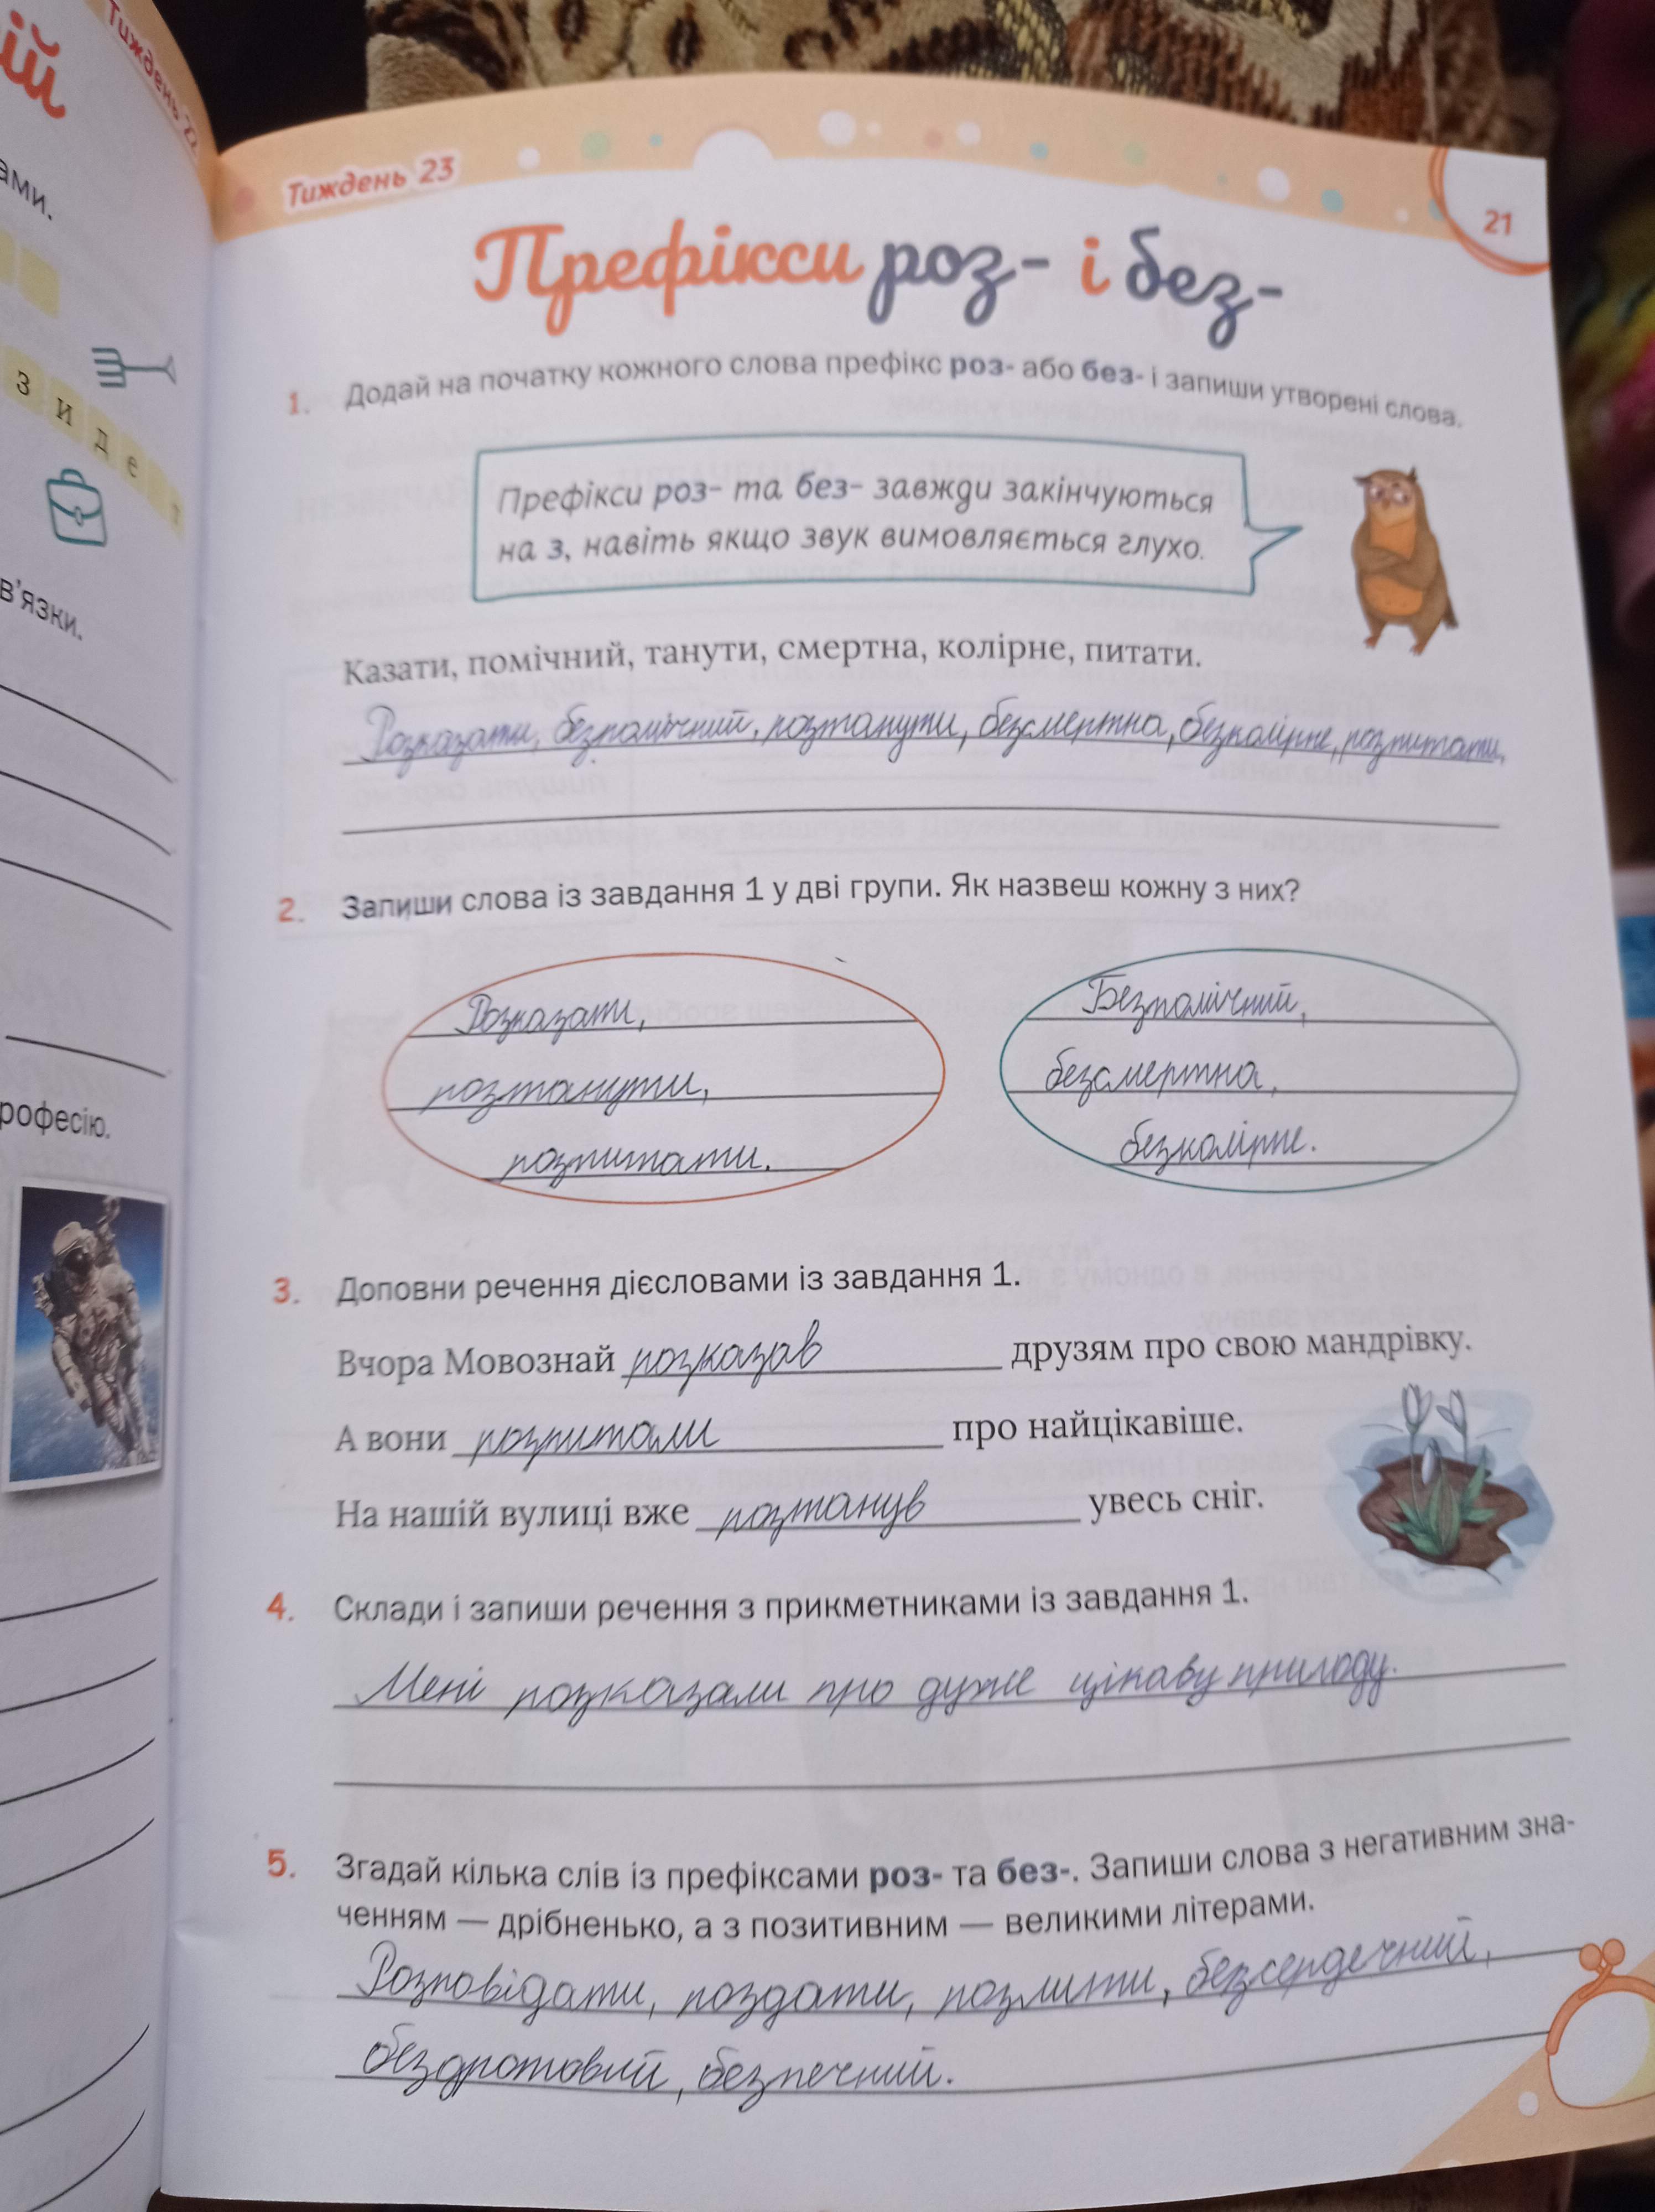 ій
Тиждень 22
ами.
з и д е т
в'язки.
рофесію.
Тиждень 23
21
Префікси роз- і без-
1. Додай на початку кожного слова префікс роз- або без- і запиши утворені слова.
Префікси роз- та без- завжди закінчуються
на з, навіть якщо звук вимовляється глухо.
Казати, помічний, танути, смертна, колірне, питати.
Розказати, безпомічний, розтанути, безсмертна, безколірне, розпитати.
2. Запиши слова із завдання 1 у дві групи. Як назвеш кожну з них?
Розказати,
розтанути,
розпитати.
Безпомічний,
безсмертна,
безколірне.
3. Доповни речення дієсловами із завдання 1.
Вчора Мовознай розказав друзям про свою мандрівку.
А вони розпитали про найцікавіше.
На нашій вулиці вже розтанув увесь сніг.
4. Склади і запиши речення з прикметниками із завдання 1.
Мені розказали про дуже цікаву пригоду.
5. Згадай кілька слів із префіксами роз- та без-. Запиши слова з негативним зна-
ченням — дрібненько, а з позитивним — великими літерами.
Розповідати, роздати, розлити, безсердечний,
бездротовий, безпечний.